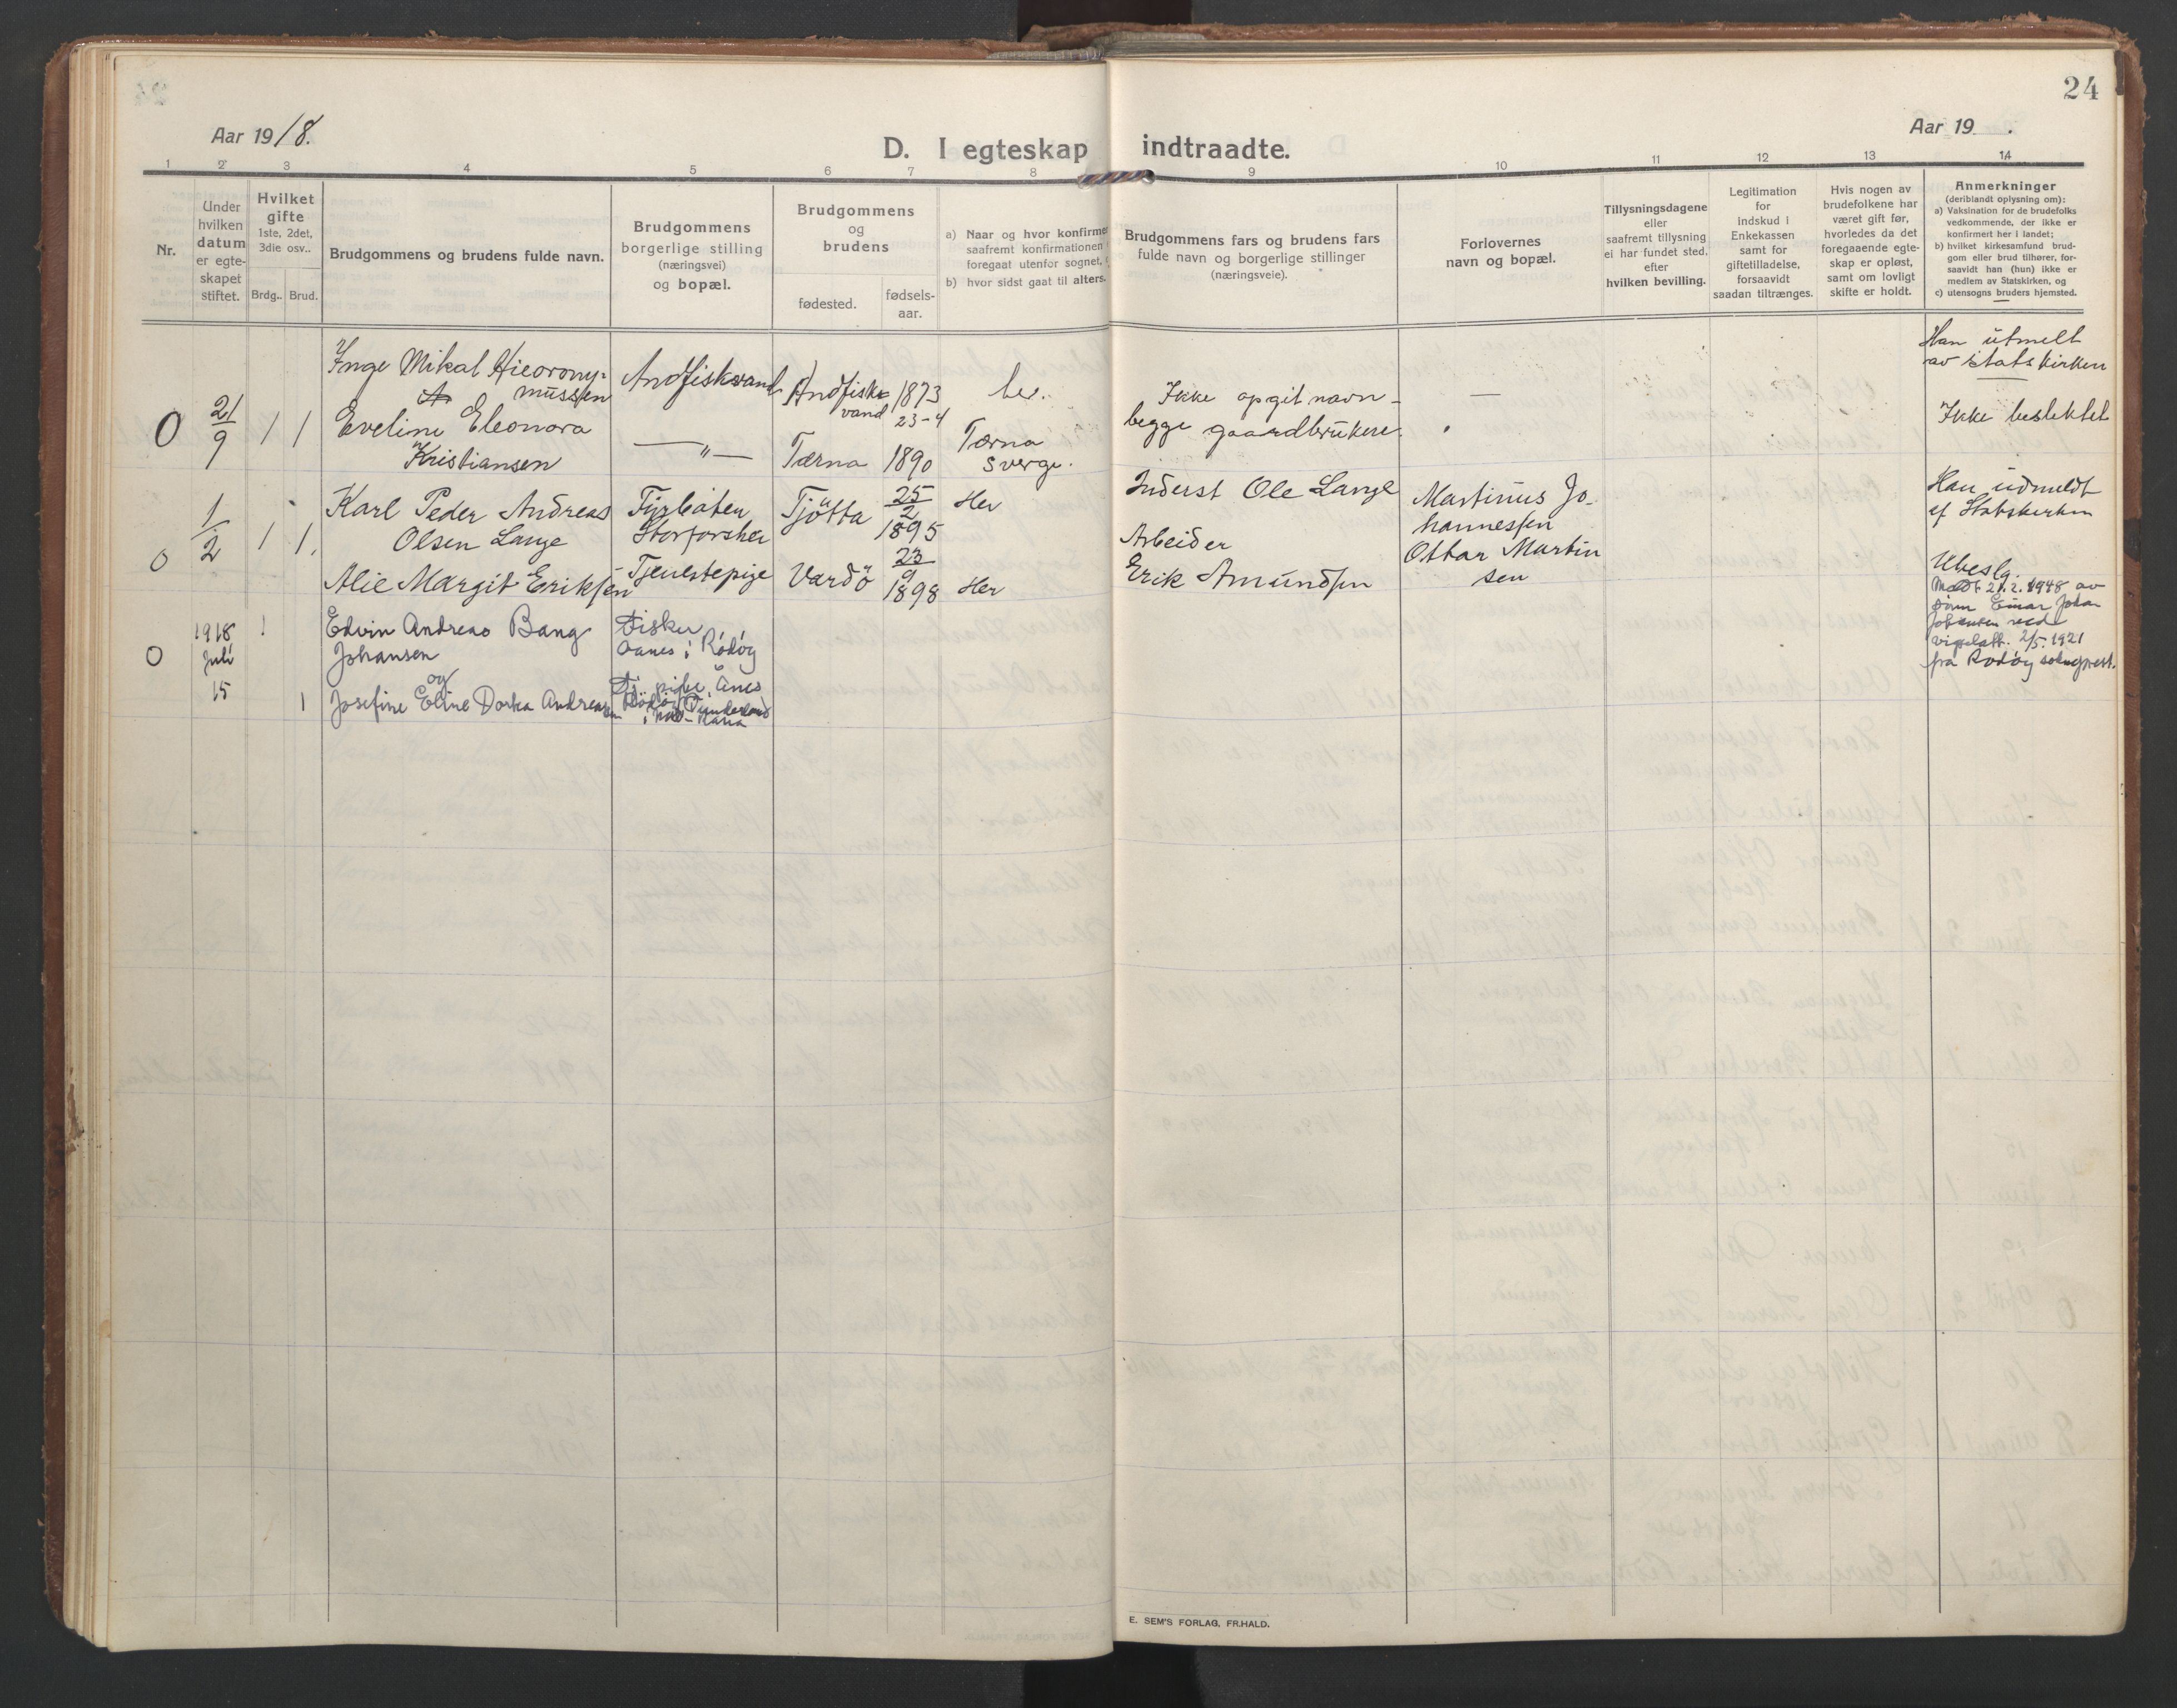 24
Aar 1918.
Aar 19 .
D. I egteskap indtraadte.
1 2 3 4 5 6 7 8 9 10 11 12 13 14
Nr.
Under
hvilken
datum
er egte-
skapet
stiftet.
Hvilket
gifte
1ste, 2det,
3die osv..
Brdg.. Brud.
Brudgommens og brudens fulde navn.
Brudgommens
borgerlige stilling
(næringsvei)
og bopæl.
Brudgommens
og
brudens
fødested.
fødsels-
aar.
a) Naar og hvor konfirmer
saafremt konfirmationen
foregaat utenfor sognet,
b) hvor sidst gaat til alters.
Brudgommens fars og brudens fars
fulde navn og borgerlige stillinger
(næringsveie).
Forlovernes
navn og bopæl.
Tillysningsdagene
eller
saafremt tillysning
ei har fundet sted,
efter
hvilken bevilling.
Legitimation
for
indskud i
Enkekassen
samt for
giftetilladelse,
forsaavidt
saadan tiltrænges.
Hvis nogen av
brudefolkene har
været gift før,
hvorledes da det
foregaaende egte-
skap er opløst,
samt om lovligt
skifte er holdt.
Anmerkninger
(deriblandt oplysning om):
a) Vaksination for de brudefolks
vedkommende, der ikke er
konfirmert her i landet;
b) hvilket kirkesamfund brud-
gom eller brud tilhører, for-
saavidt han (hun) ikke er
medlem av Statskirken, og
c) utensogns bruders hjemsted.
0
21/9
1 1
Inge Mikal Hieorony-
mussen
Eveline Eleonora
Kristiansen
Andfiskvand
— " —
Andfisk-
vand
1873
23-4
Tærna 1890
her.
Tærna
Sverge.
Ikke opgit navn -
begge gaardbrukere.
—
Han utmelt
av statskirken
Ikke beslektet
0
1/2
1 1.
Karl Peder Andreas
Olsen Lange
Alie Margit Eriksen
Fyrbøter
Storforshei
Tjenestepige
Tjötta
25/2
1895
Vardö
23/9
1898
Her
Her
Inderst Ole Lange
Arbeider
Erik Amundsen
Martinus Jo-
hannessen
Ottar Martin
sen
Han udmeldt
af Statskirken
Ubeslg.
0
1918
Juli
15
1
1
Edvin Andreas Bang
Johansen
og
Josefine Eline Dorka Andreassen
Fisker
Aanes i Rødøy
Tj. pike, Ånes
Rødøy, Dunderland
i Mo-Rana
Medt 21.2.1948 av
Einar Johan
Johansen med
vigselatt. 2/5 1921
fra Rødøy sokneprest.
E. SEM'S FORLAG, FR.HALD.